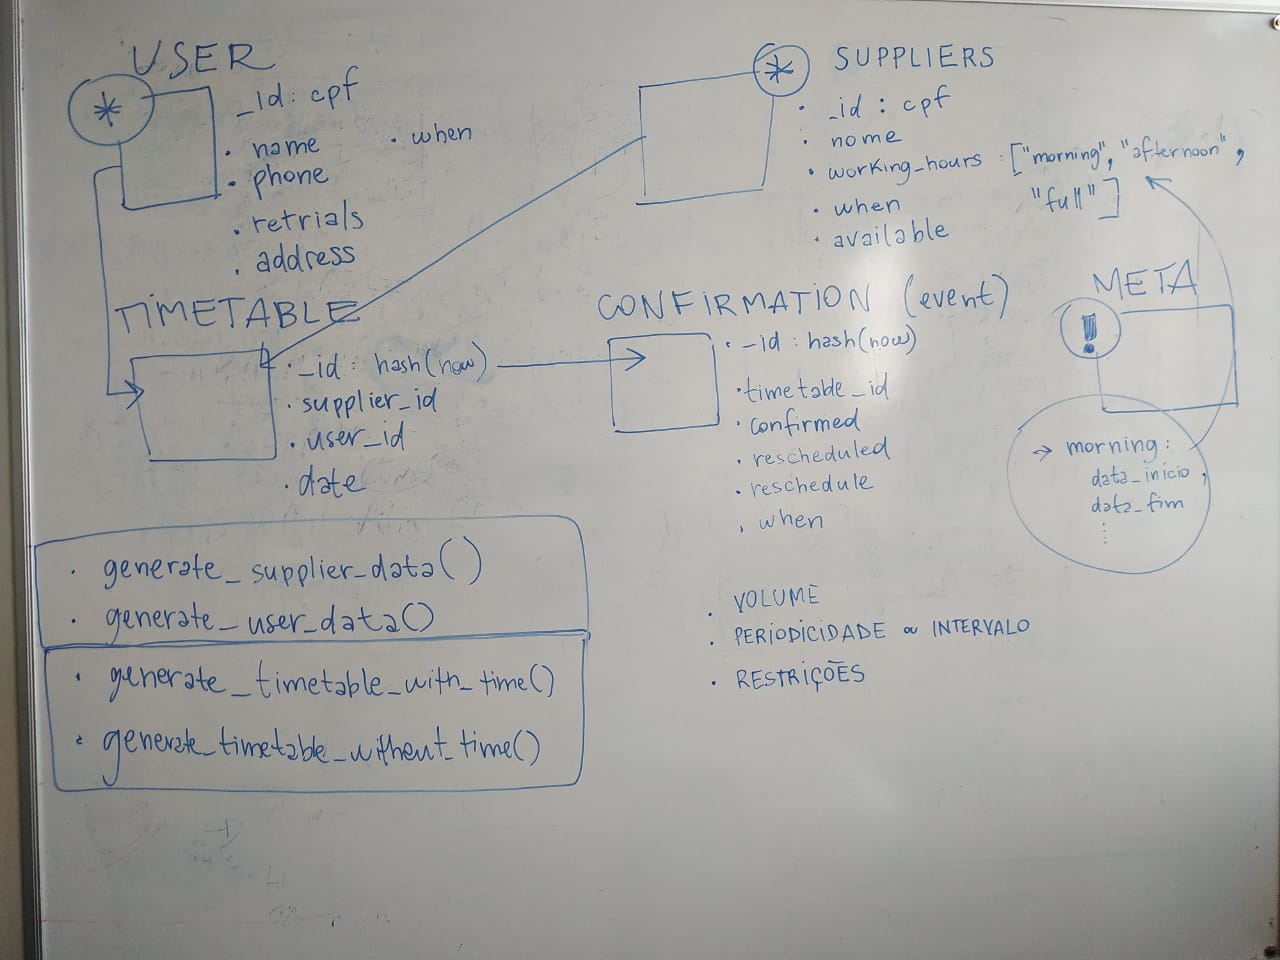 USER
*
_id: cpf
. name
. when
. phone
. retrials
. address
* SUPPLIERS
. _id : cpf
. nome
. working_hours : ["morning", "afternoon",
"full"]
. when
. available
TIMETABLE
. _id: hash(now)
. supplier_id
. user_id
. date
CONFIRMATION (event)
. _id: hash(now)
. timetable_id
. confirmed
. rescheduled
. reschedule
. when
META
!
→ morning:
data_inicio,
data_fim
. generate_supplier_data()
. generate_user_data()
. generate_timetable_with_time()
. generate_timetable_without_time()
. VOLUME
. PERIODICIDADE ou INTERVALO
. RESTRIÇÕES